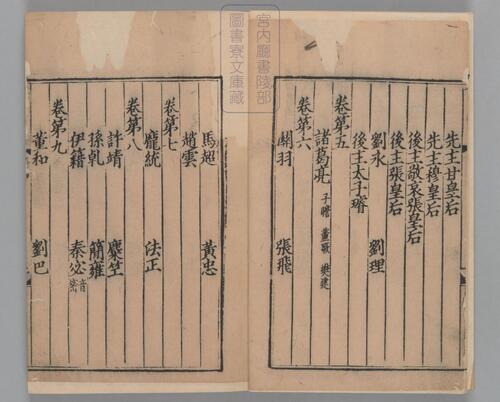 先主甘皇后
先主穆皇后
後主敬哀張皇后
後主張皇后
劉永 劉理
後主太子璿
卷第五
諸葛亮 子瞻 董厥 樊建
卷第六
關羽 張飛
馬超 黃忠
趙雲
卷第七
龐統 法正
卷第八
許靖 麋竺
孫乾 簡雍
伊籍 秦宓 音密
卷第九
董和 劉巴
宮內廳書陵部
圖書寮文庫藏